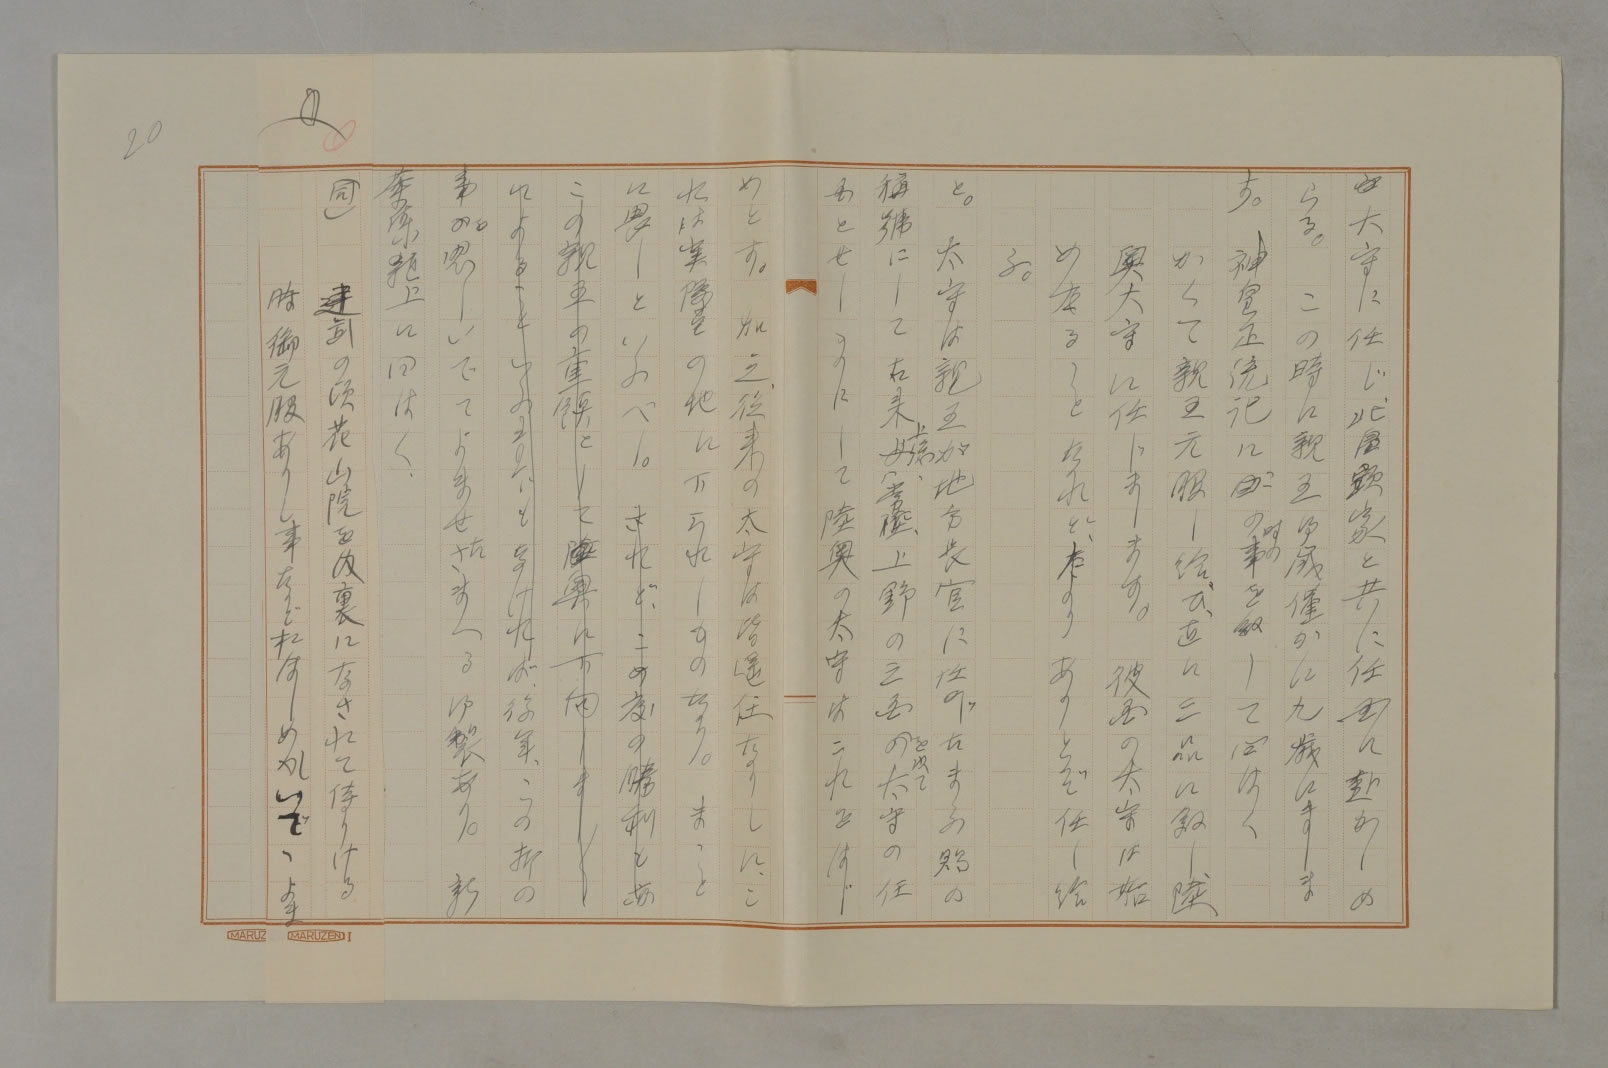 大守に任じ北畠顕家と共に任国に赴かしめ
らる。この時に親王御歳僅かに九歳にましま
す。神皇正統記にこの時の事を叙して曰はく
かくて親王元服し給ひ、直に三品に叙し陸
奥大守に任じまします。彼国の太守は始
めたることなれど、たよりありとぞ任じ給
ふ。
と。太守は親王が地方長官に任ぜられたまふ時の
稱號にして古来上總、常陸、上野の三国を以て太守の任
国とせしものにして陸奥の太守はこれをはじ
めとす。加之、従来の太守は皆遥任なりしに、こ
れは実際の地に下られしものなり。まこと
に畏しといふべし。されど、この度の勝利とあ
この親王の重鎮として陸奥に下向しましし
によることいふまでもなけれど、後年、この折の
事を思しいでてよませたまへる御製あり。新
葉集雑上に曰はく、
同 建武の頃花山院を内裏になされて侍りける
時御元服ありし事などおぼしめしいでてよま
20
MARUZ
MARUZEN